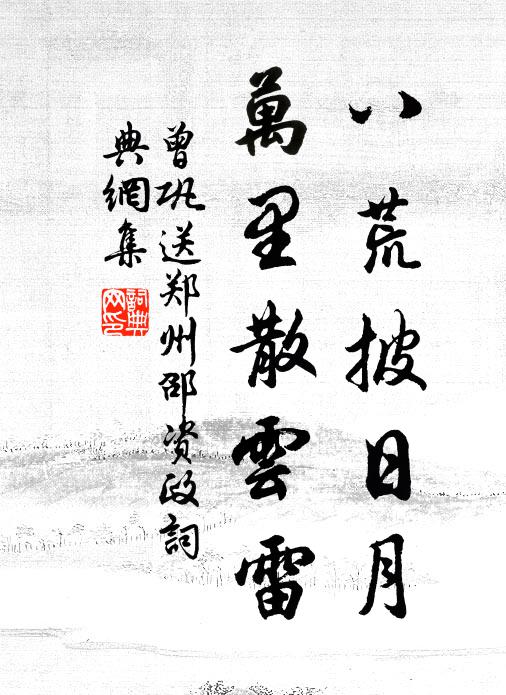 八荒披日月
萬里散雲雷
曾巩送郑州邵资政詞
典網集
詞典網印